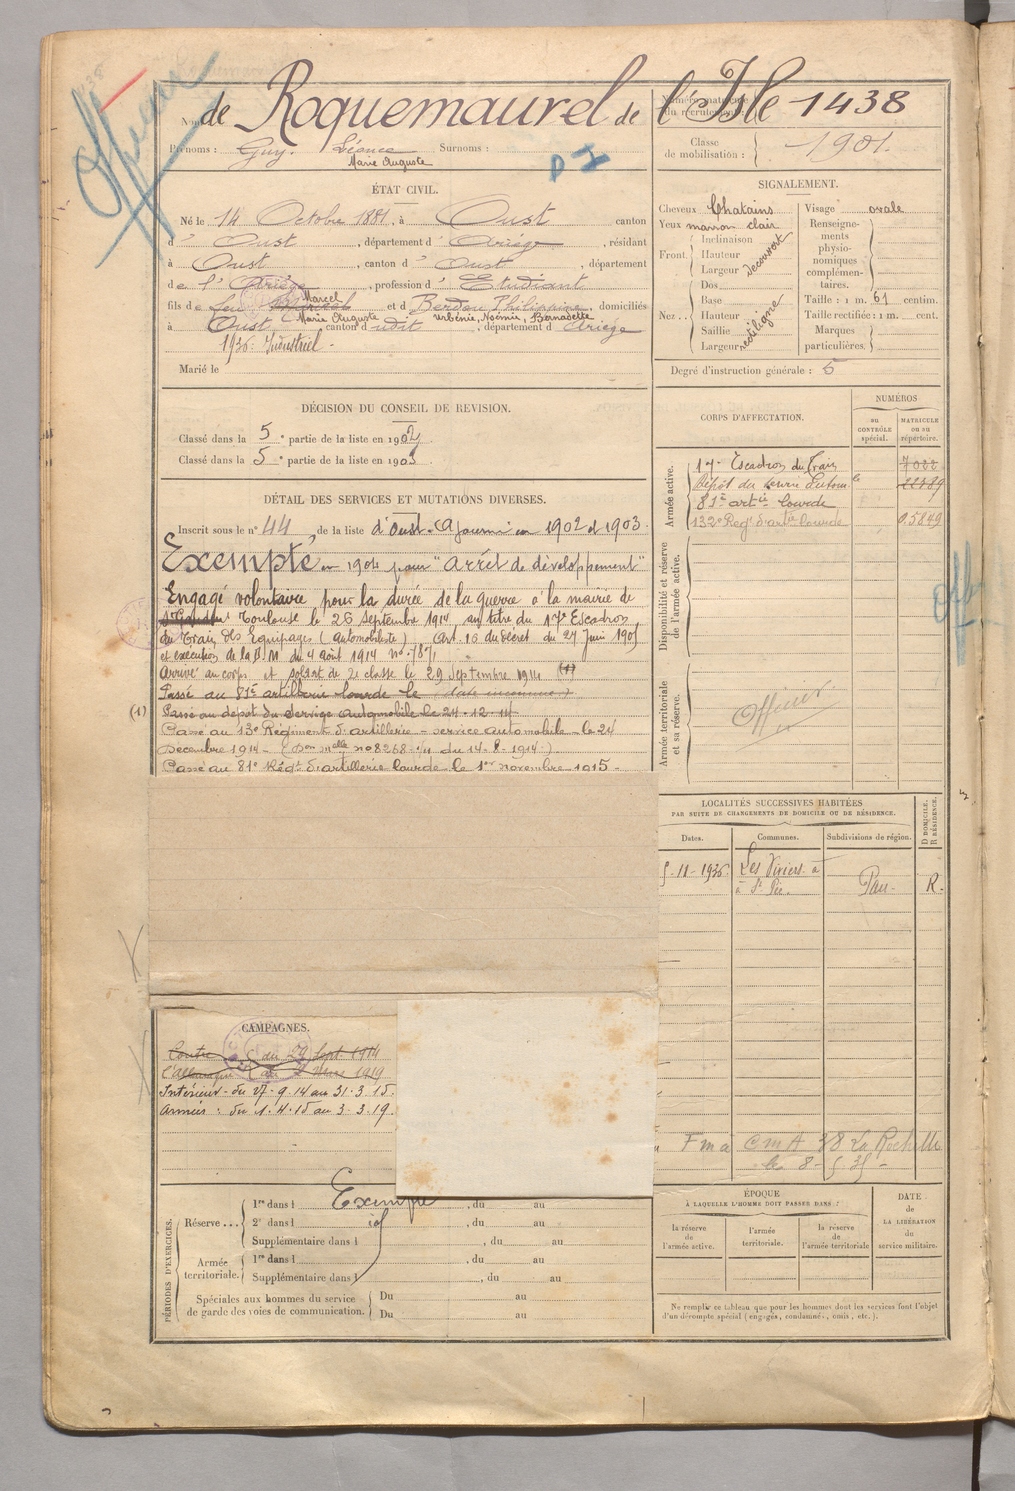 Officier
Nom : de Roquemaurel de l'Isle 1438
Numéro matricule du recrutement
Prénoms : Guy. Léonce Surnoms :
Marie Auguste
Classe de mobilisation : 1901.
ÉTAT CIVIL.
Né le 14 Octobre 1881, à Oust canton
d' Oust, département d' Ariège, résidant
à Oust, canton d' Oust, département
de l' Ariège, profession d' Etudiant
fils de feu Marcel et d Berdou Philippine, domiciliés
Marie Auguste Urbénie, Noémie, Bernadette
à Oust canton d udit, département d' Ariège
1936. Industriel.
Marié le
SIGNALEMENT.
Cheveux Chatains
Yeux marron clair
Front. Inclinaison
Hauteur
Largeur découvert
Nez Dos
Base
Hauteur
Saillie
Largeur rectiligne
Visage ovale
Renseignements physionomiques complémentaires.
Taille : 1 m. 61 centim.
Taille rectifiée : 1 m. cent.
Marques particulières.
Degré d'instruction générale : 5
DÉCISION DU CONSEIL DE REVISION.
Classé dans la 5e partie de la liste en 1902
Classé dans la 5e partie de la liste en 1903
CORPS D'AFFECTATION.
NUMÉROS
au CONTRÔLE spécial.
MATRICULE ou au répertoire.
Armée active.
17e Escadron du Train 7022
Dépôt du Servce Autom.le
81e artie lourde
132e Reg. d'artie lourde 05849
Disponibilité et réserve de l'armée active.
Armée territoriale et sa réserve.
Officier
DÉTAIL DES SERVICES ET MUTATIONS DIVERSES.
Inscrit sous le n° 44 de la liste d'Oust. Ajourné en 1902 et 1903.
Exempté en 1904 pour "Arrêt de développement"
Engagé volontaire pour la durée de la guerre à la mairie de
Toulouse le 26 septembre 1914, au titre du 17e Escadron
du Train des Equipages (automobiliste), art. 16 du décret du 27 juin 1905
et exécution de la D.M du 4 août 1914 no
Arrivé au corps et soldat de 2e classe le 29 Septembre 1914 (1)
Passé au 81e artillerie lourde le (date inconnue)
(1) Passé au dépôt du Service Automobile le 24.12.14
Passé au 13e Régiment d'artillerie - service automobile le 24
Decembre 1914 - (Don melle no 8268 - 1/11 du 14-8-1914)
Passé au 81e Régt d'artillerie lourde le 1er novembre 1915 -
LOCALITÉS SUCCESSIVES HABITÉES
PAR SUITE DE CHANGEMENTS DE DOMICILE OU DE RÉSIDENCE.
Dates. Communes. Subdivisions de région. D DOMICILE. R RÉSIDENCE.
5-11-1936 Les Viviers à St Pée. Pau. R.
Fma CMA 18 La Rochelle
le 8-5-35-
CAMPAGNES.
Contre C du 29 Sept. 1914
l'Allemagne au 3 Mars 1919
Intérieur - du 27-9-14 au 31-3-15.
Armées : du 1-4-15 au 3-3-19.
PÉRIODES D'EXERCICES.
Réserve ...
1re dans l Exempté, du au
2e dans l id, du au
Supplémentaire dans l , du au
Armée territoriale.
1re dans l , du au
Supplémentaire dans l , du au
Spéciales aux hommes du service de garde des voies de communication.
Du au
Du au
ÉPOQUE
À LAQUELLE L'HOMME DOIT PASSER DANS :
la réserve de l'armée active.
l'armée territoriale.
la réserve de l'armée territoriale
DATE de LA LIBÉRATION du service militaire.
Ne remplir ce tableau que pour les hommes dont les services font l'objet
d'un décompte spécial (engagés, condamnés, omis, etc.).